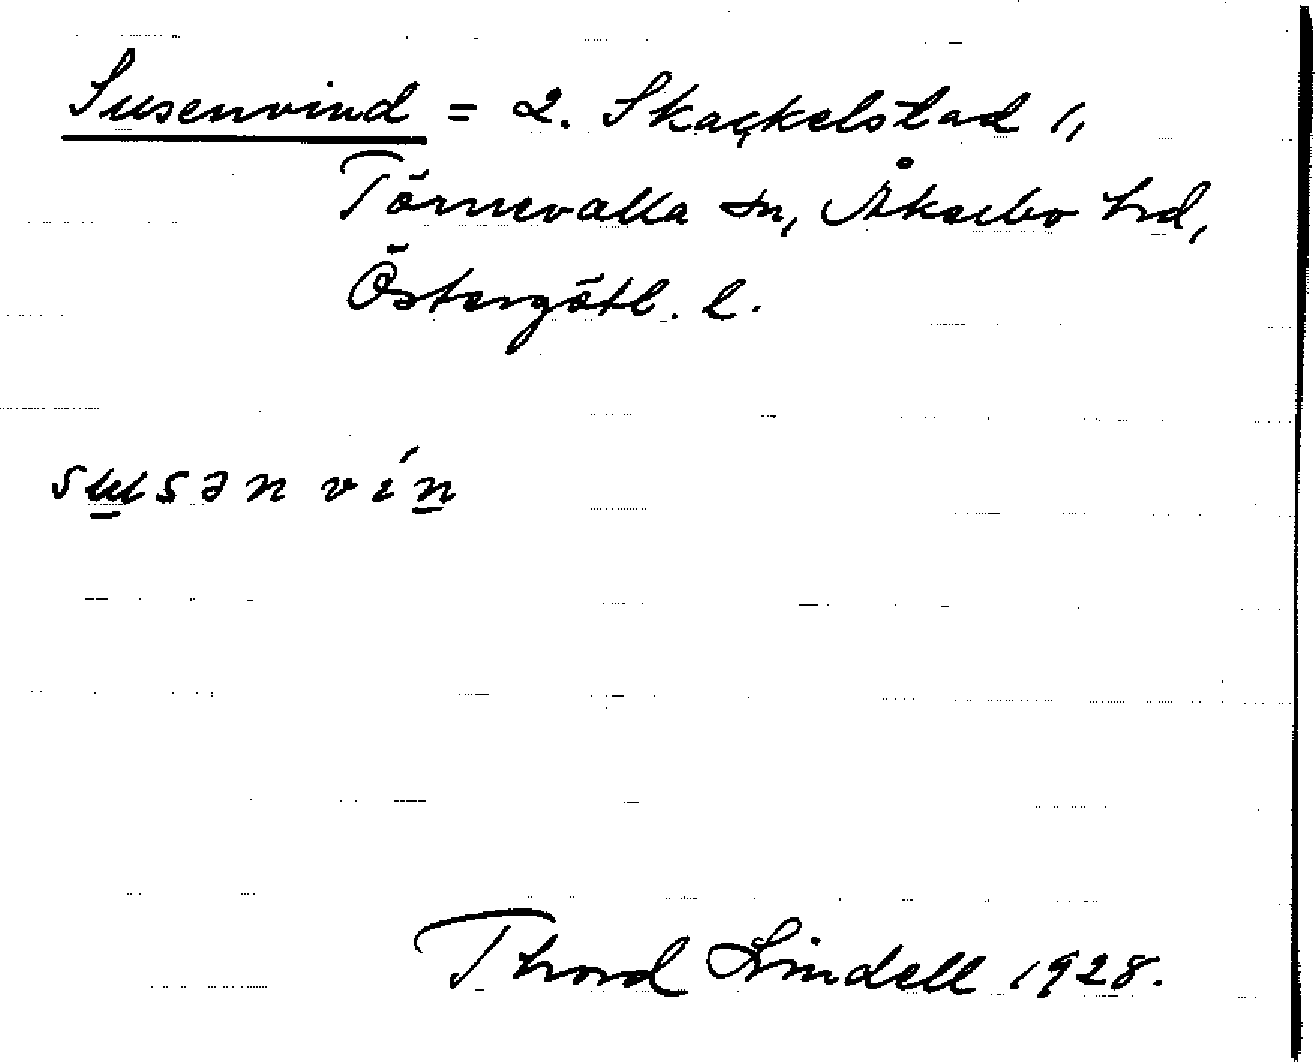 Susenvind = 2. Skackelstad 1,
Törnevalla sn, Åkerbo hd,
Östergötl. l.
sɯsən vín
Thord Lindell 1928.